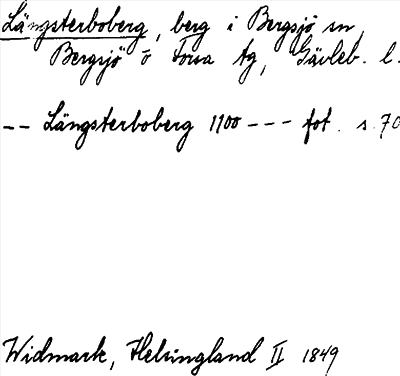 Längsterboberg, berg i Bergsjö sn,
Bergsjö o Forsa tg, Gävleb. l.
-- Längsterboberg 1100 --- fot. s. 70
Widmark, Helsingland II 1849